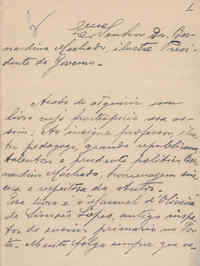 1
Senhor Dr. Ber-
nardino Machado, ilustre Presi-
dente do Governo.
Acabo de adquirir um
livro cujo frontispicio reza as-
sim: Ao insigne professor, illus-
tre pedagogo, grande republicano,
talentoso e prudente politico Ber-
nardino Machado, homenagem sin-
cera e respeitosa do auctor.
Esse livro é o Manual d'Oliveira
de Simões Lopes, antigo inspe-
tor do ensino primario no Por-
to. Muito folgo sempre que ve-